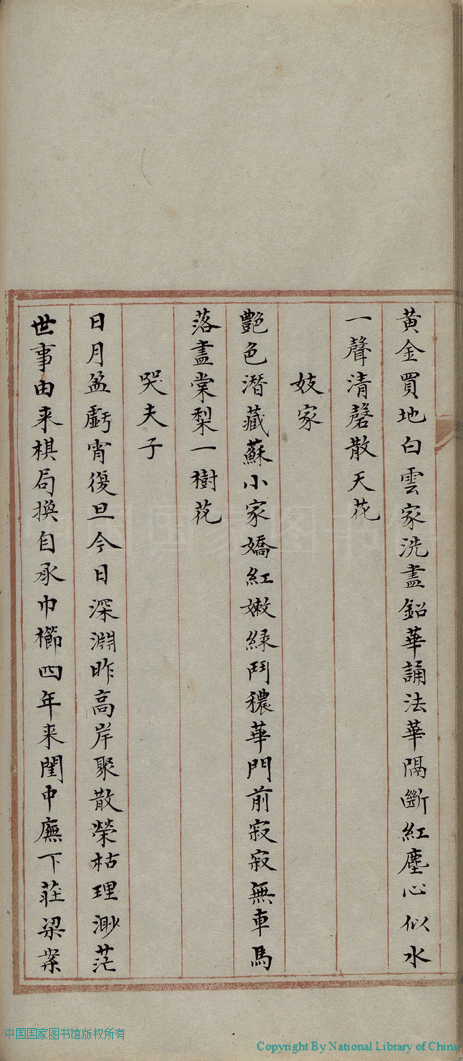 黃金買地白雲家洗盡鉛華誦法華隔斷紅塵心似水
一聲清磬散天花
妓家
艷色潛藏蘇小家嬌紅嫩綠鬥穠華門前寂寂無車馬
落盡棠梨一樹花
哭夫子
日月盈虧宵復旦今日深淵昨高岸聚散榮枯理渺茫
世事由來棋局換自承巾櫛四年來閨中廡下莊梁案
中国国家图书馆版权所有
Copyright By National Library of China